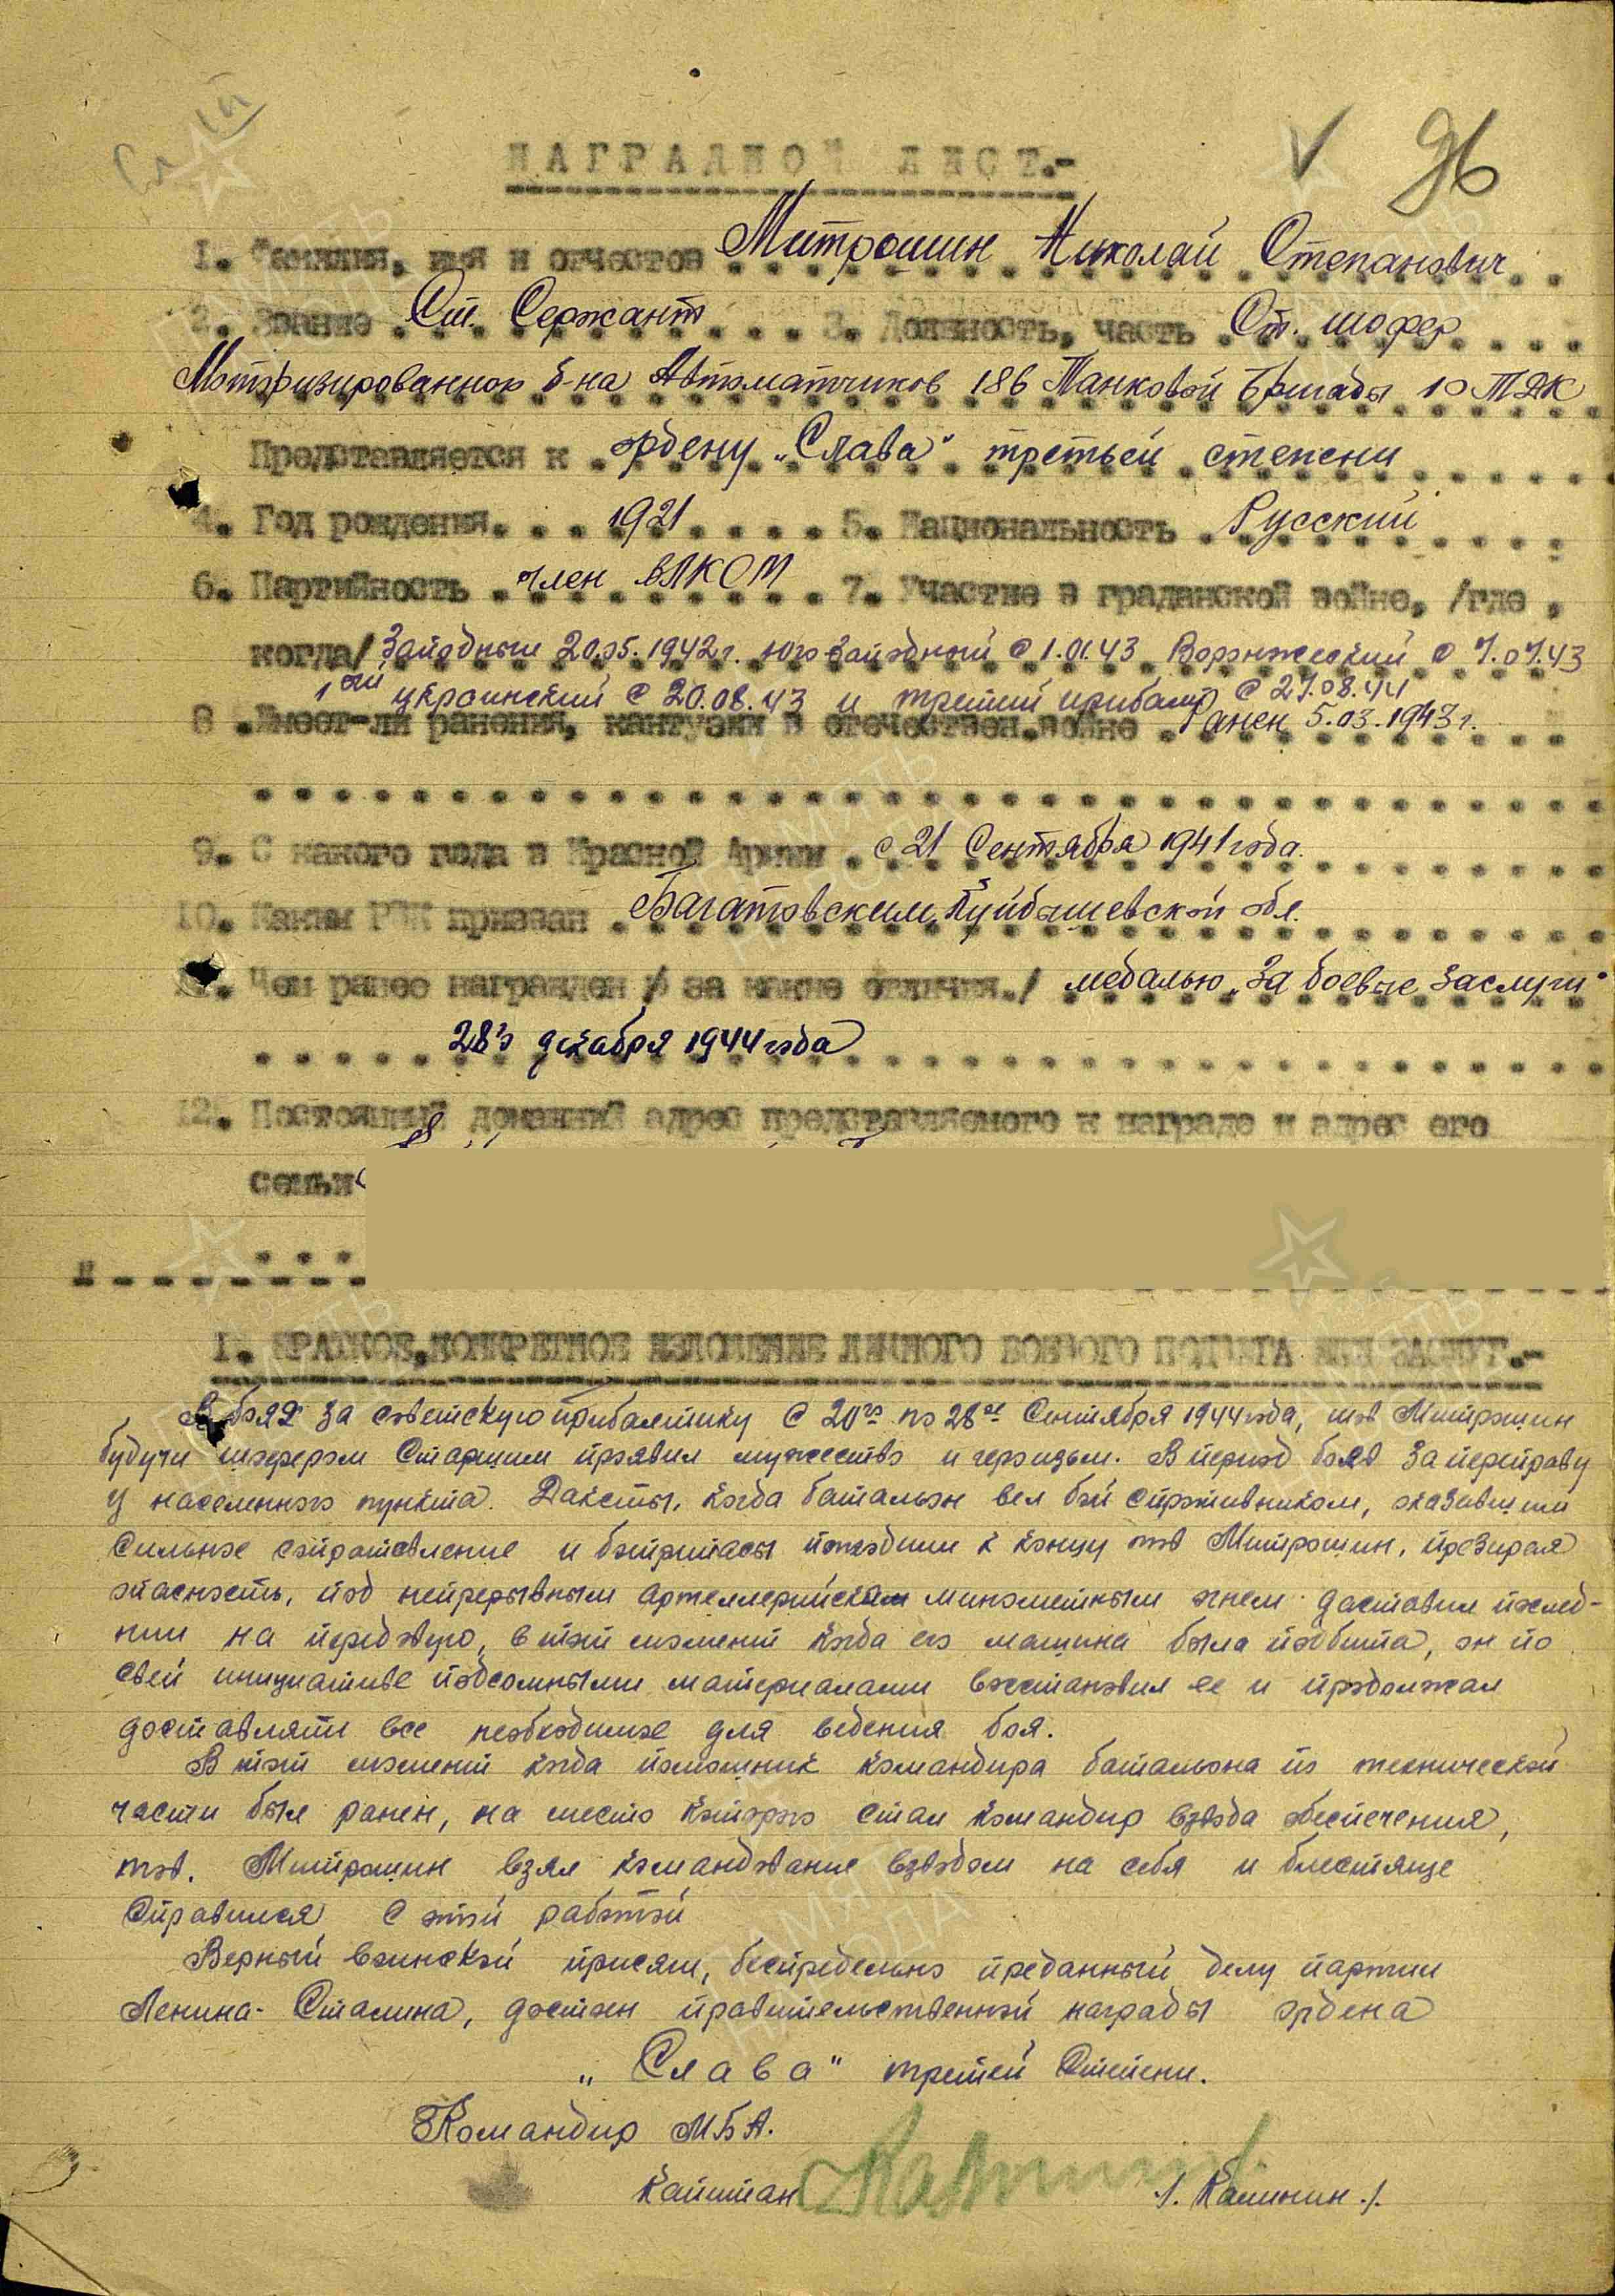 Сл
96
НАГРАДНОЙ ЛИСТ.-
1. Фамилия, имя и отчество Митрошин Николай Степанович
2. Звание Ст. Сержант 3. Должность, часть Ст. шофер
Мотофизированного б-на Автоматчиков 186 Танковой Бригады 10 ТДК
Представляется к ордену „Слава" третьей степени
4. Год рождения 1921 5. Национальность Русский
6. Партийность член ВЛКСМ 7. Участие в граданской войне, /где,
когда/ Западный 20.05.1942г. юго западный с 1.01.43 Воронжеский с 7.07.43
1ый украинский с 20.08.43 и третий прибалт с 27.08.44
8. Имеет-ли ранения, кантузии в отечествен.войне Ранен 5.03.1943г.
9. С какого года в Красной Армии с 21 Сентября 1941 года.
10. Каким РВК призван Багатовским, Куйбышевской обл.
11. Чем ранее награжден /и за какие отличия./ медалью „За боевые заслуги"
28го декабря 1944 года
12. Постоянный домашний адрес представляемого к награде и адрес его
семьи
1. КРАТКОЕ,КОНКРЕТНОЕ ИЗЛОЖЕНИЕ ЛИЧНОГО БОЕВОГО ПОДВИГА ИЛИ ЗАСЛУГ.-
В боях за советскую прибалтику с 20го по 28ое Сентября 1944 года, тов Митрошин
будучи шофером Старшим проявил мужество и героизьм. В период боев за переправу
у населенного пункта. Даксты, когда батальон вел бой с противником, оказавшим
сильное сопротивление и боеприпасы подходили к концу тов Митрошин, презирая
опасность, под непрерывным артеллерийским минометным огнем доставил послед-
нии на передовую, в тот момент когда его машина была подбита, он по
свей инициативе подсомными материалами востановил ее и продолжал
доставлять все необходимое для ведения боя.
В тот момент когда помощник командира батальона по технической
части был ранен, на место которого стал командир взвода обеспечения,
тов. Митрошин взял командование взводом на себя и блестяще
справился с этой работой
Верный воинской присяги, беспредельно преданный делу партии
Ленина-Сталина, достоин правительственной награды ордена
„Слава" третьей степени.
Командир МБА.
Капитан /. Калинин ./.
ПАМЯТЬ
НАРОДА